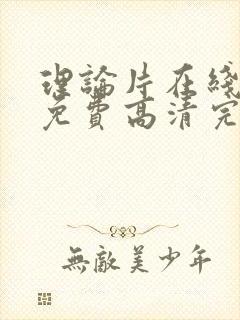 理論片在綫
免費高清完
無敵美少年